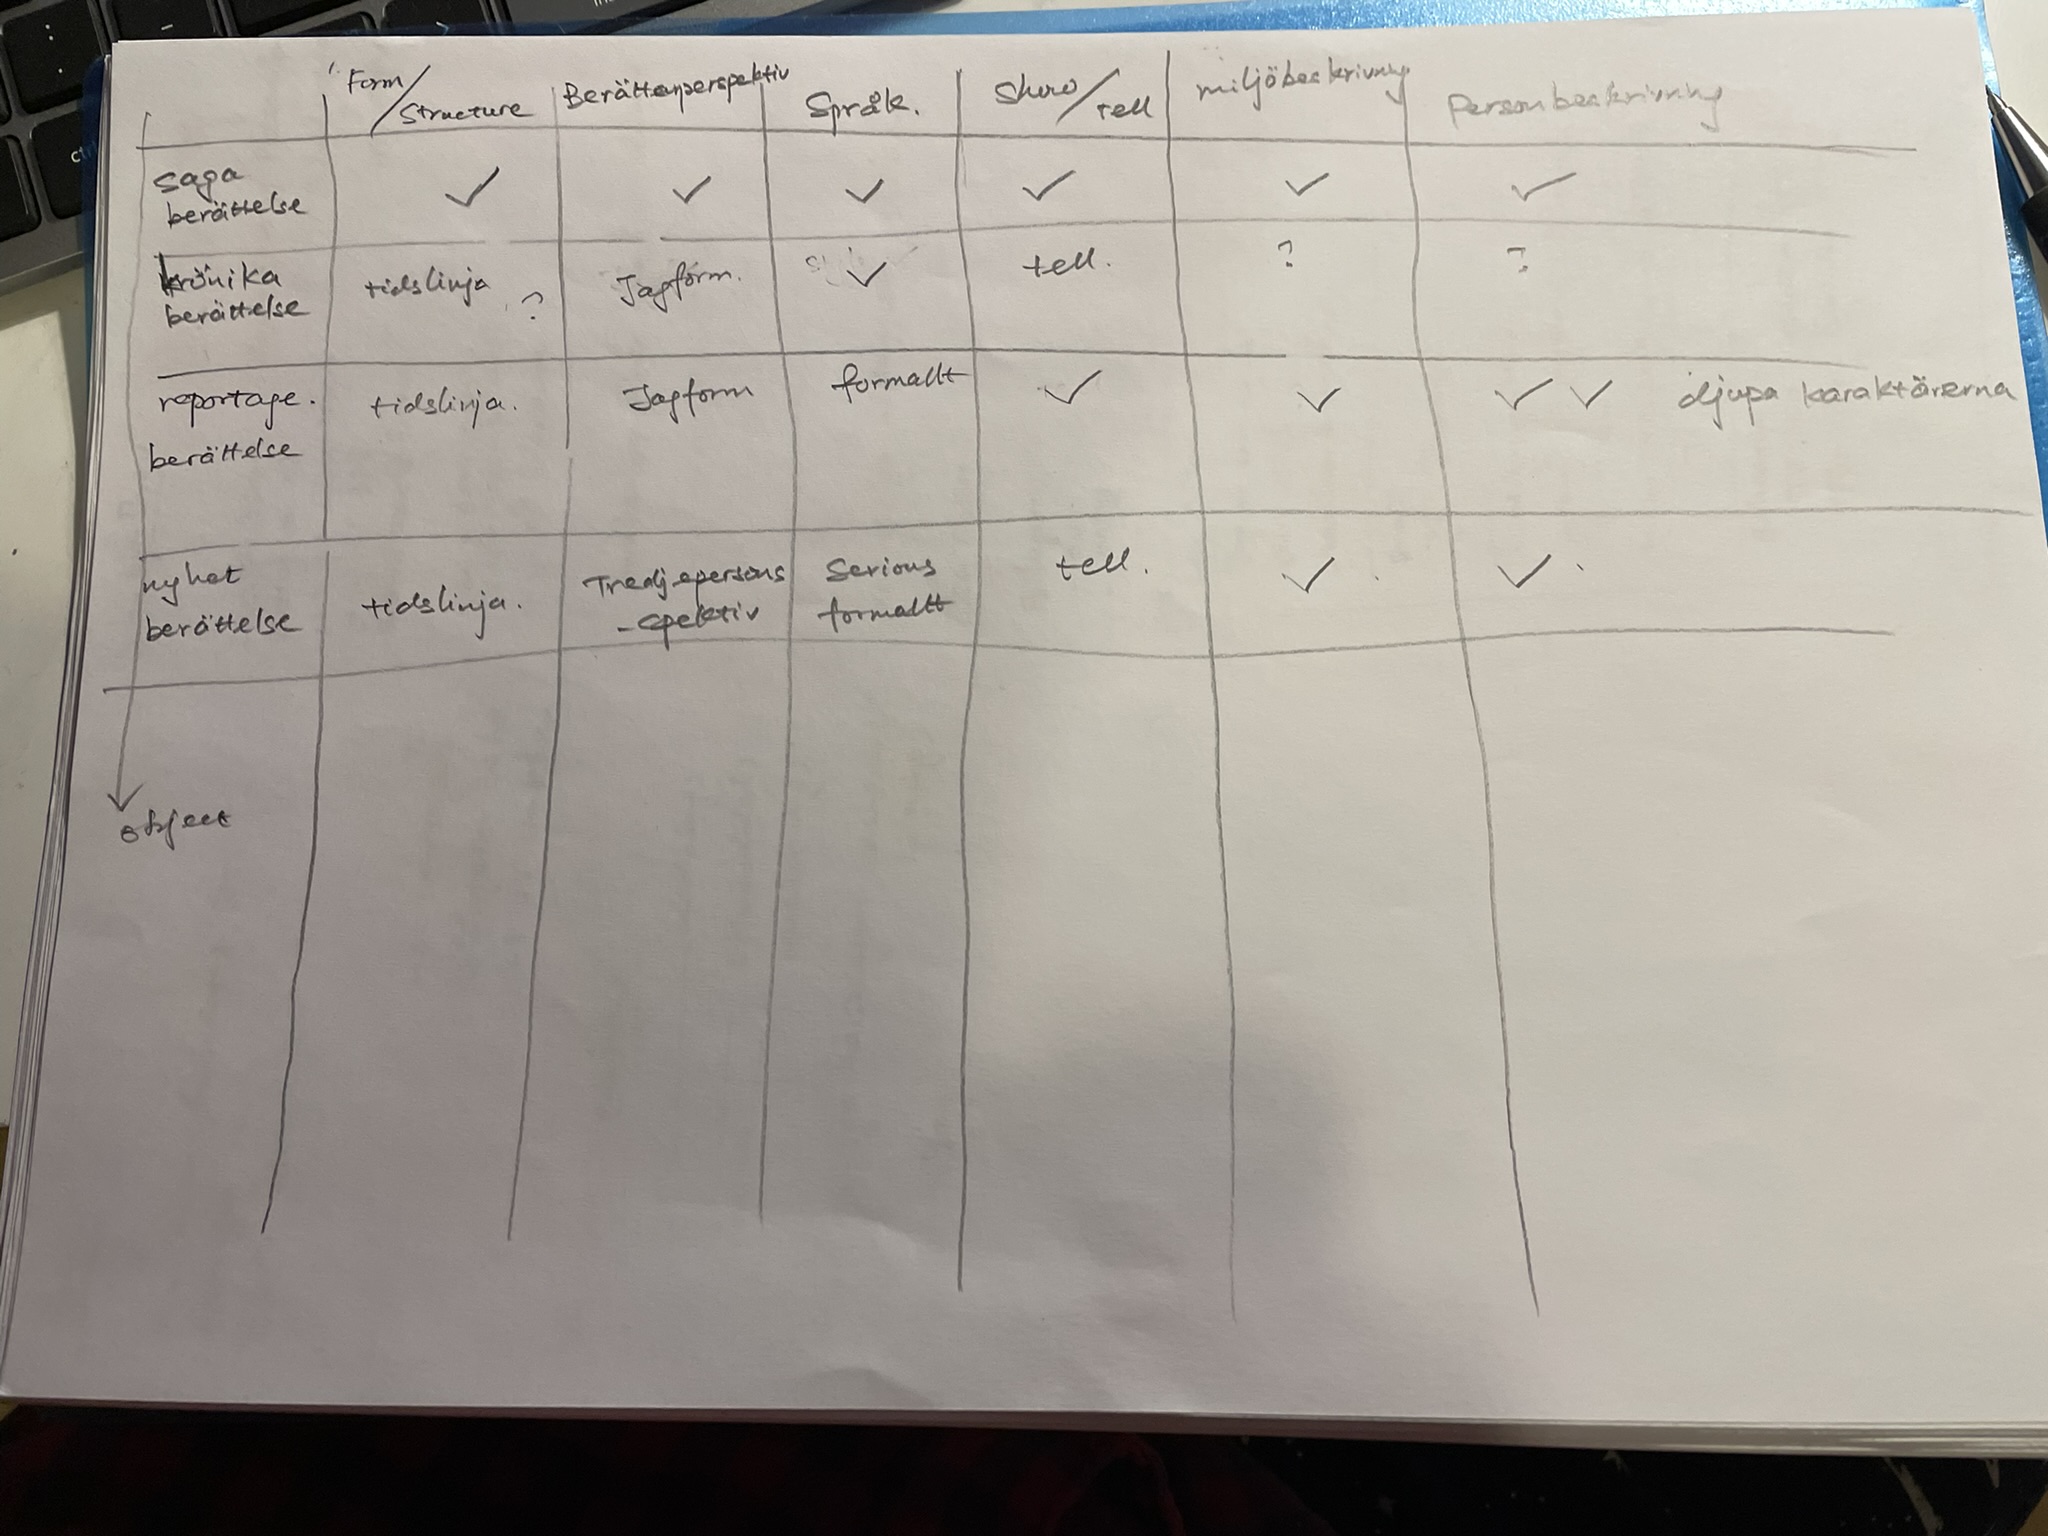 Form/Structure Berättarperspektiv Språk. Show/tell miljöbeskrivning Personbeskrivning
saga berättelse ✓ ✓ ✓ ✓ ✓ ✓
krönika berättelse tidslinja ? Jagform. ✓ tell. ? ?
reportage. berättelse tidslinja. Jagform formallt ✓ ✓ ✓ ✓ djupa karaktärerna
nyhet berättelse tidslinja. Tredjepersons -spektiv Serious formallt tell. ✓ ✓
object